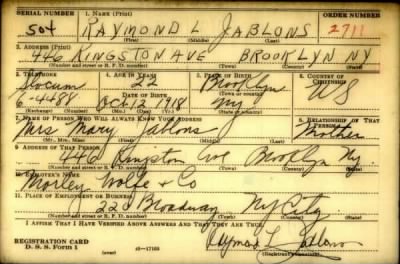 SERIAL NUMBER 1. NAME (Print) ORDER NUMBER
504 RAYMOND L JABLONS 2711
(First) (Middle) (Last)
2. ADDRESS (Print)
446 KINGSTON AVE BROOKLYN NY
(Number and street or R. F. D. number) (Town) (County) (State)
3. TELEPHONE 4. AGE IN YEARS 5. PLACE OF BIRTH 6. COUNTRY OF CITIZENSHIP
Slocum 22 Brooklyn U S
DATE OF BIRTH (Town or county)
6-4488 Oct 12 1918 NY
(Exchange) (Number) (Mo.) (Day) (Yr.) (State or country)
7. NAME OF PERSON WHO WILL ALWAYS KNOW YOUR ADDRESS 8. RELATIONSHIP OF THAT PERSON
Mrs Mary Jablons Mother
(Mr., Mrs., Miss) (First) (Middle) (Last)
9. ADDRESS OF THAT PERSON
446 Kingston Ave Brooklyn Ny.
(Number and street or R. F. D. number) (Town) (County) (State)
10. EMPLOYER'S NAME
Morley Wolfe & Co
11. PLACE OF EMPLOYMENT OR BUSINESS
220 Broadway Ny City
(Number and street or R. F. D. number) (Town) (County) (State)
I AFFIRM THAT I HAVE VERIFIED ABOVE ANSWERS AND THAT THEY ARE TRUE.
REGISTRATION CARD
D. S. S. Form 1 16-17105 Raymond L Jablons